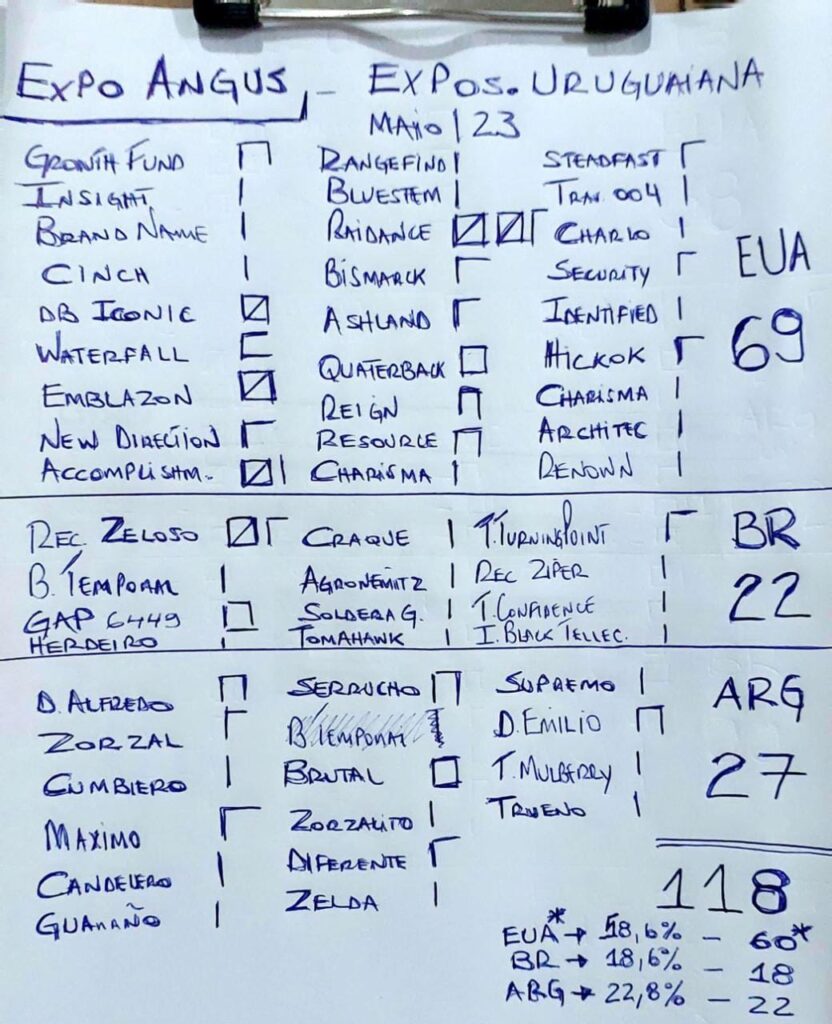 EXPO ANGUS - EXPOS. URUGUAIANA
MAIO | 23
GROWTH FUND
INSIGHT
BRAND NAME
CINCH
DB ICONIC
WATERFALL
EMBLAZON
NEW DIRECTION
ACCOMPLISHM.
RANGEFIND
BLUESTEM
RAIDANCE
BISMARCK
ASHLAND
QUATERBACK
REIGN
RESOURCE
CHARISMA
STEADFAST
TRAV. 004
CHARLO
SECURITY
IDENTIFIED
HICKOK
CHARISMA
ARCHITEC
RENOWN
EUA
69
REC. ZELOSO
B. TEMPORAL
GAP 6449
HERDEIRO
CRAQUE
AGRONEMITZ
SOLDERA G.
TOMAHAWK
T. TURNINGPOINT
REC ZIPER
T. CONFIDENCE
I. BLACK TELLEC.
BR
22
D. ALFREDO
ZORZAL
CUMBIERO
MAXIMO
CANDELERO
GUARAÑO
SERRUCHO
B TEMPORAL
BRUTAL
ZORZALITO
DIFERENTE
ZELDA
SUPREMO
D. EMILIO
T. MULBERRY
TRUENO
ARG
27
118
EUA* → 58,6% - 60*
BR → 18,6% - 18
ARG → 22,8% - 22